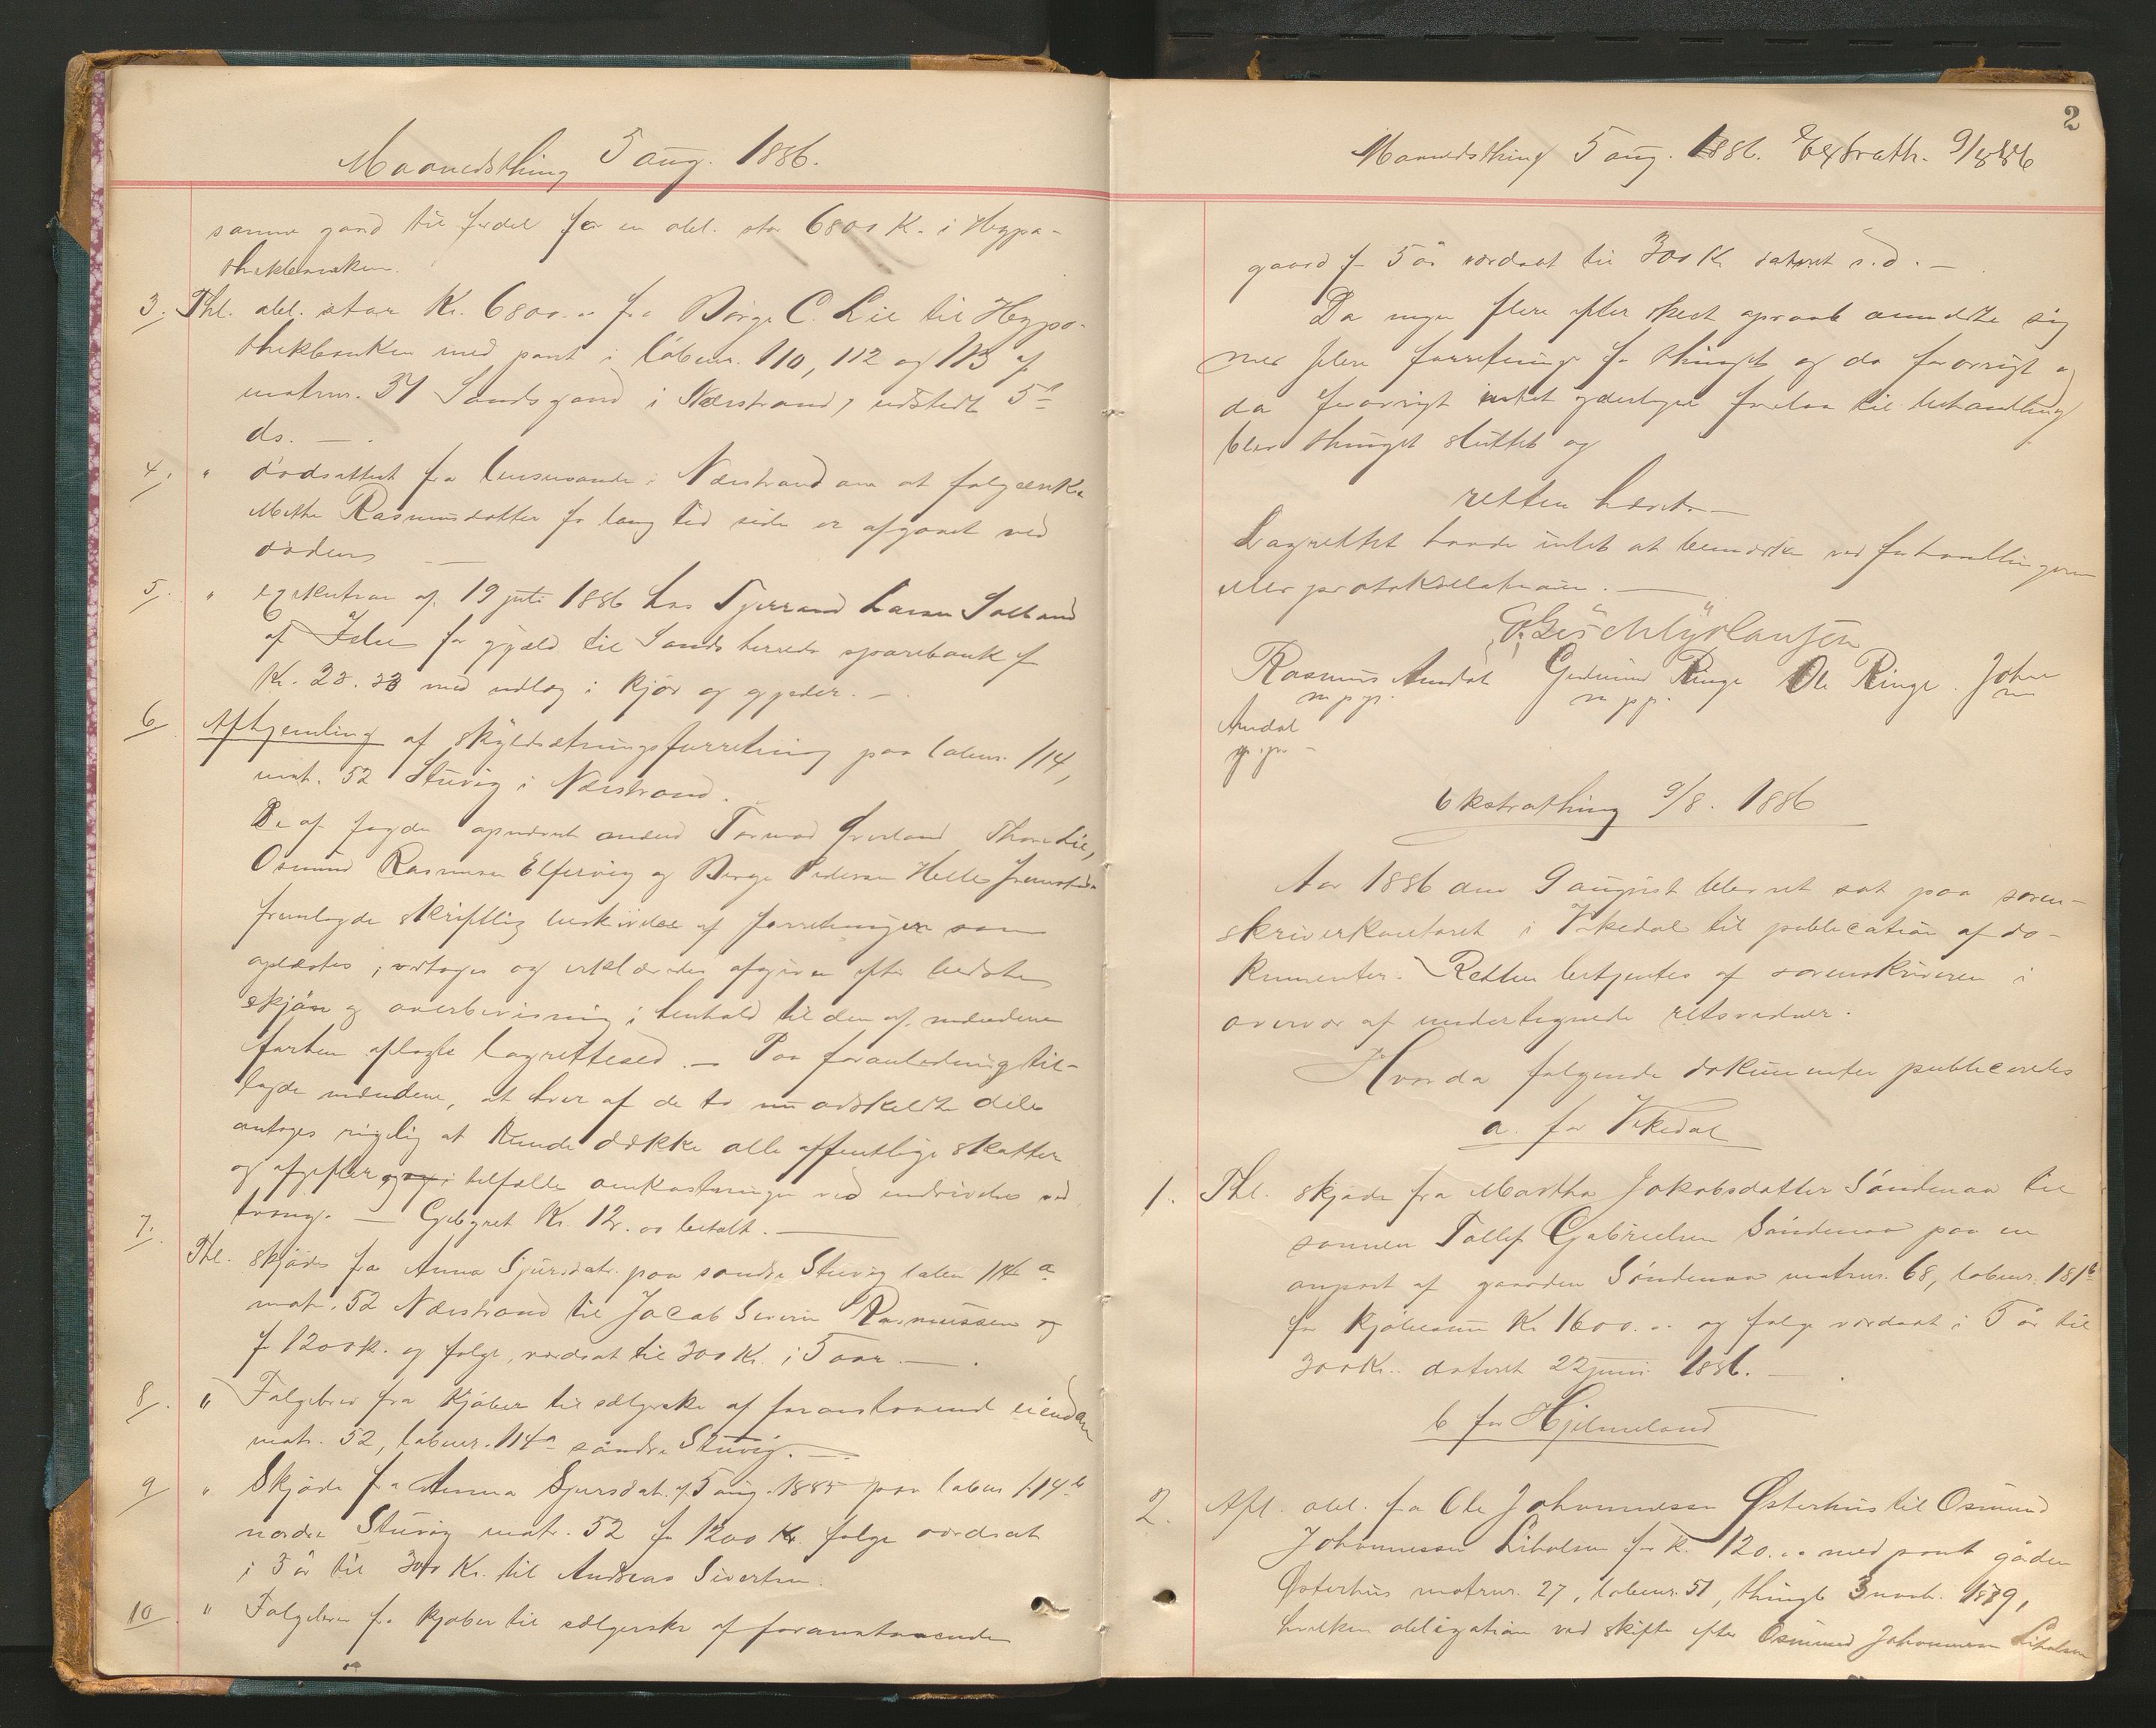 Maanedsthing 5 aug. 1886.
samme gaard til fordel for en obl. stor 6800 K. i Hypo-
thekbanken.
3. Thl. obl. stor Kr. 6800.00 fra Børge C. Lie til Hypo-
thekbanken med pant i löbenr. 110, 112 og 113 af
matrnr. 37 Sandsgaard i Nærstrand, udstedt 5te
ds. —
4. " dödsattest fra lensmanden i Nærstrand om at folgeenke
Mette Rasmusdatter for lang tid siden er afgaaet ved
döden —
5. " exekution af 19 juli 1886 hos Larsen
af for gjæld til Sands herreds sparebank
Kr. 23.33 med udlæg i kjör og gjeder. —
6 Afhjemling af skyldsætningsforretning paa löbenr. 114,
mat. 52 Stuvig i Nærstrand.
De af fogden opnævnte mænd Tormod Thore Lie,
Osmund Rasmusen Elfervig og Børge Pedersen Helle
fremlagde skriftlig beskrivelse af forretningen som
oplæstes, vedtoges og erklæredes afgiven efter bedste
skjön og overbevisning i henhold til den af mændene
forhen aflagte lagretteed. — Paa foranledning til-
lagde mændene, at hver af de to nu adskildte dele
antoges rigelig at kunde dække alle offentlige skatter
og afgifter og i tilfælde omkostninger ved inddrivelse ved
tvang. — Gebyret Kr. 12.00 betalt. —
7. Thl. skjöde fra Anna Sjursdatr. paa söndre Stuvig löben 114 a
matr. 52 Nærstrand til Jacob Severin Rasmussen
f 1200 K. og folge, værdsat til 300 Kr. i 5 aar. —
8. " Folgebrev fra kjöber til sælgerske af foranstaaende eiendom
matr. 52, löbenr. 114a söndre Stuvig. —
9 " Skjöde fra Anna Sjursdatr. af 5 aug. 1885 paa löbenr 114 b
nordre Stuvig matr. 52 for 1200 Kr. folge værdsat
i 5 år til 300 Kr. til Andreas Sivertsen.
10 " Folgebrev fra kjöber til sælgerske af foranstaaende
2
Maanedsthing 5 aug. 1886. Extrath. 9/8 86
gaard f 5 år værdsat til 300 K dateret s.d. —
Da ingen flere efter skeet opraab anmeldte sig
med flere forretninger for thinget og da forövrigt
da forövrigt intet yderligere forelaa til behandling
blev thinget sluttet og
retten hævet. —
Lagrettet havde intet at bemærke ved forhandlingerne
eller protokollationen. —
Rasmus Amdal Gudmund Ringe Ole Ringe. John
m.p.p. m.p.p.
Amdal
Ekstrathing 9/8. 1886
Aar 1886 den 9 august blev ret sat paa soren-
skriverkontoret i Vikedal til publication af do-
kumenter. Retten betjentes af sorenskriveren i
overvær af undertegnede retsvidner.
Hvorda folgende dokumenter publiceredes
a. for Vikedal
1. Thl. skjöde fra Martha Jakobsdatter Söndenaa til
sönnen Tollef Gabrielsen Söndenaa paa en
anpart af gaarden Söndenaa matrnr. 68, löbenr. 181 b
for kjöbesum Kr 1600.00 og folge værdsat i 5 år til
300 Kr. dateret 22 juni 1886. —
b for Hjelmeland
2. Afl. obl. fra Ole Johannessen Østerhus til Osmund
Johannessen Liholsen for K. 120.00 med pant gården
Østerhus matrnr. 27, löbenr. 51, thingl. 3 novb. 1879,
hvilken obligation ved skifte efter Osmund Johannessen Liholsen